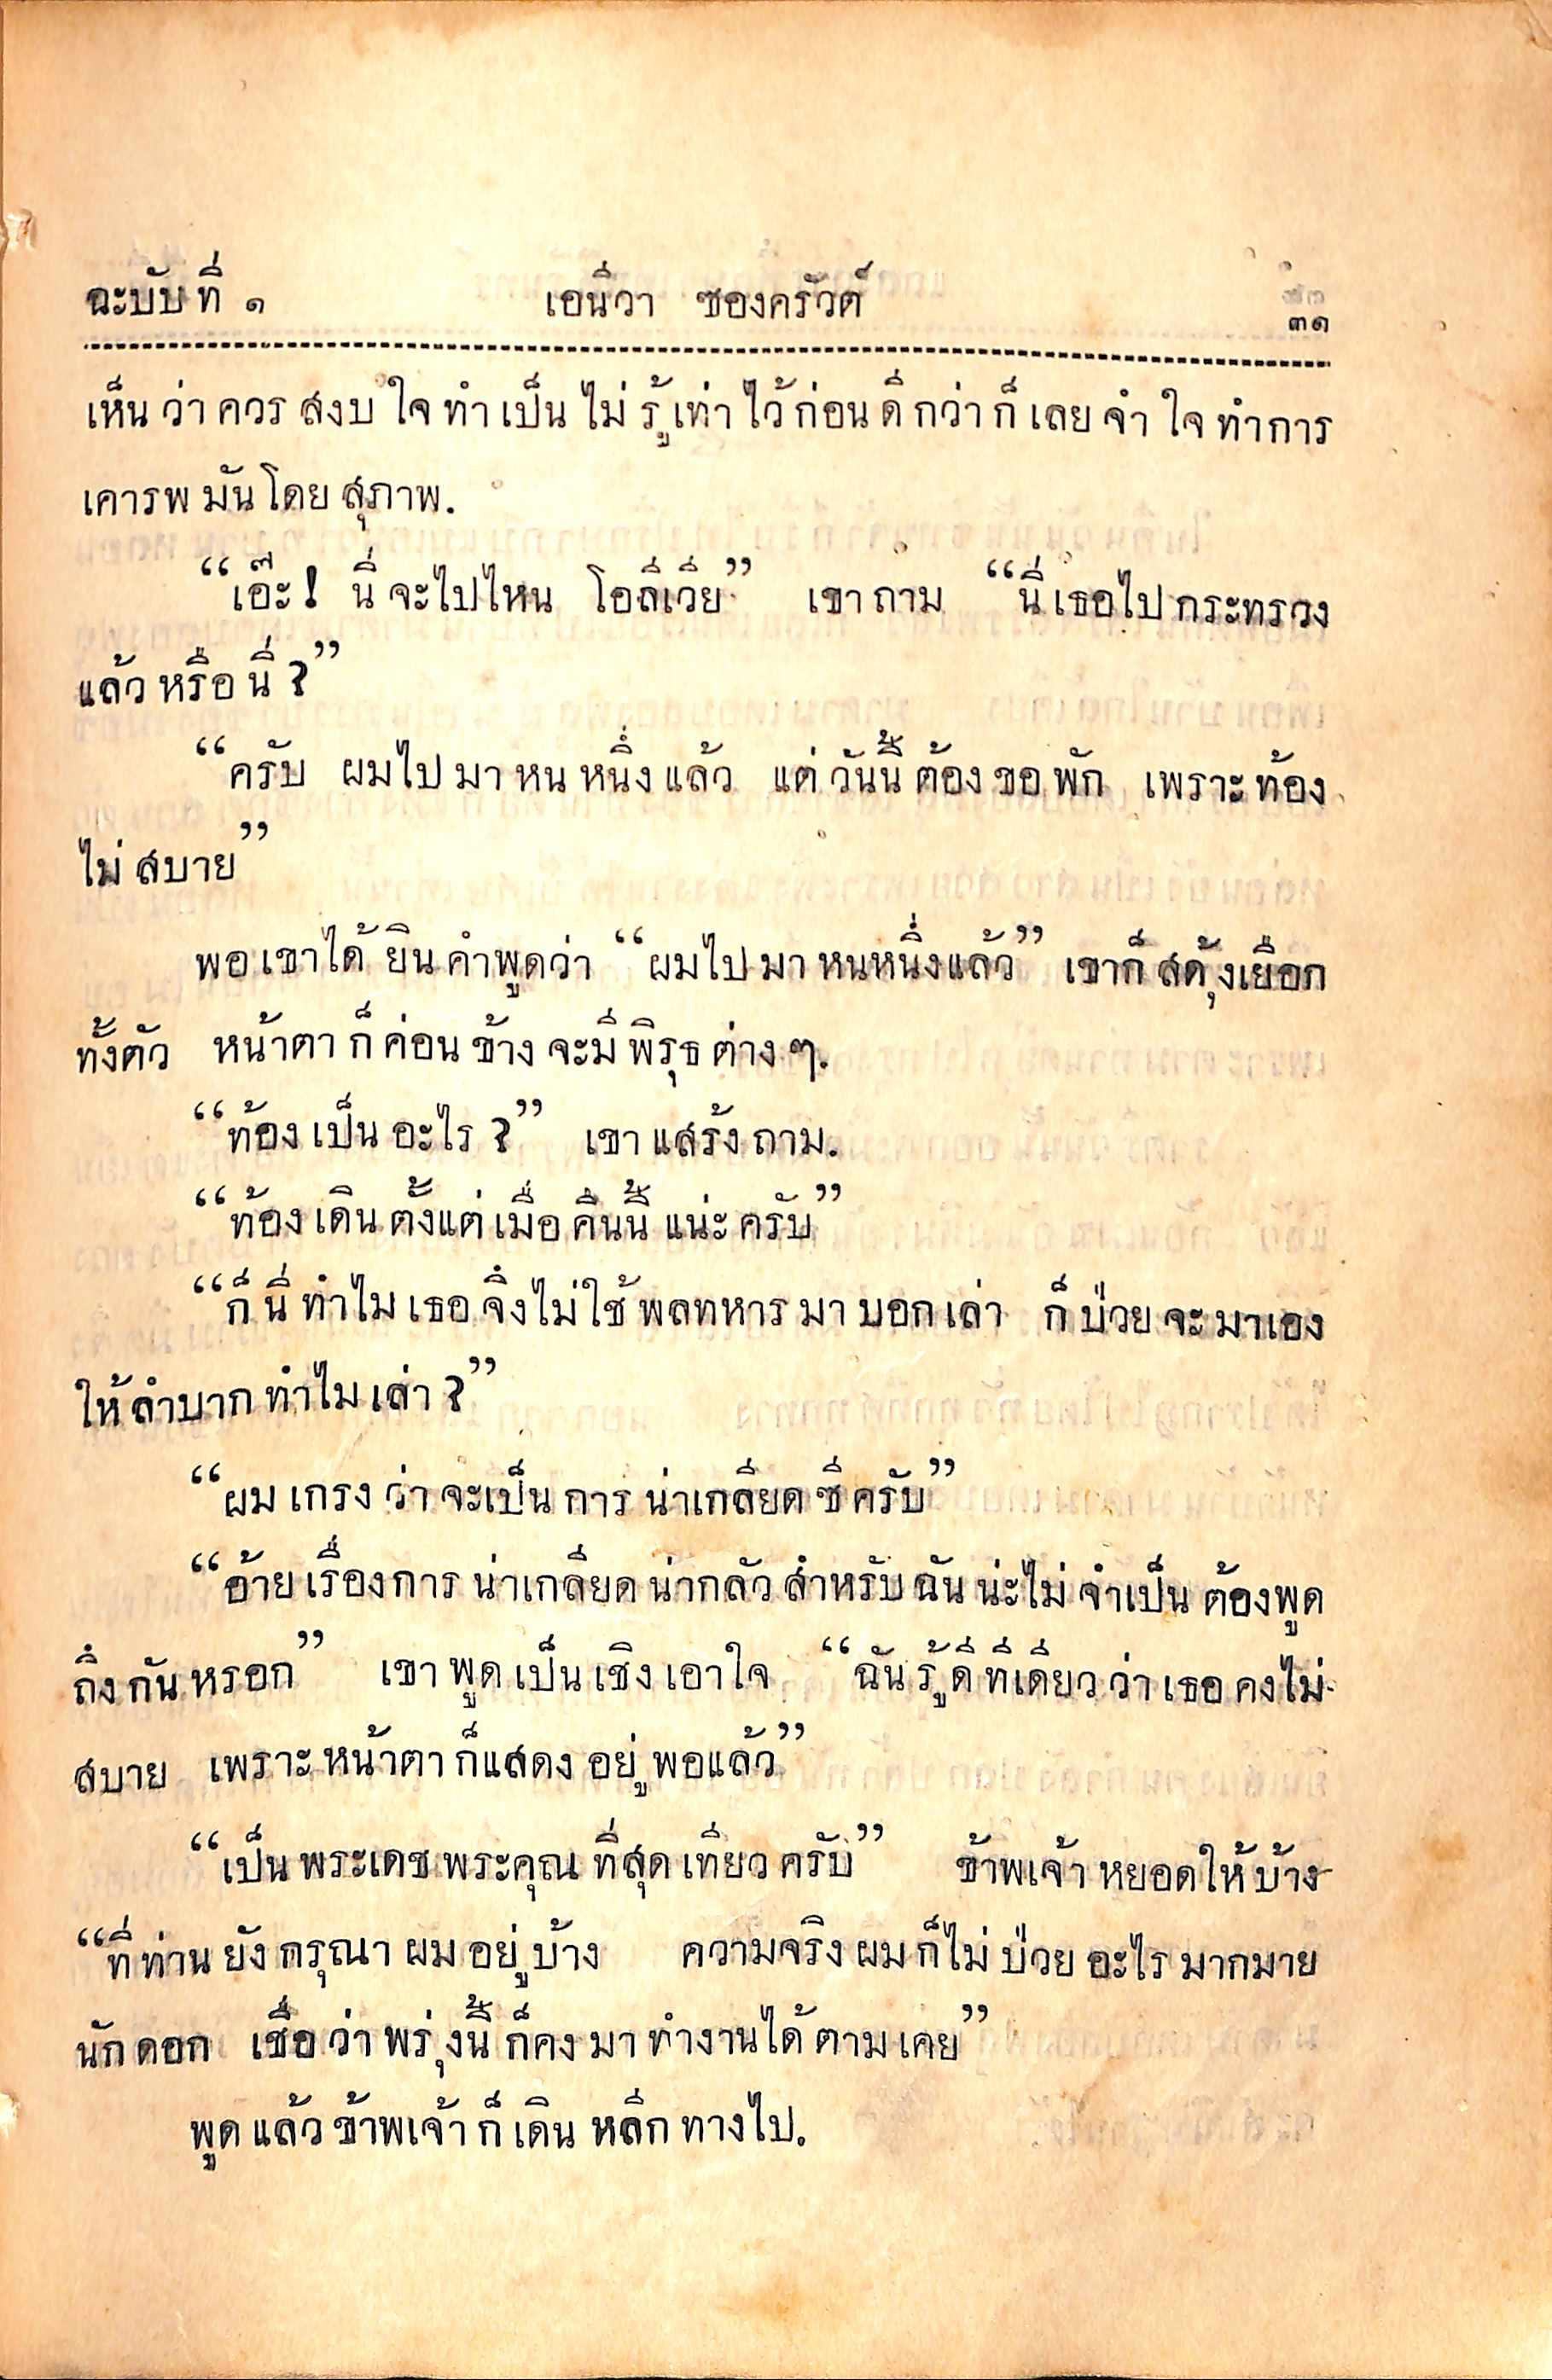 ฉะบับที่ ๑ เอนีวา ซองครัวต์ ๓๑
เห็นว่าควรสงบใจทำเป็นไม่รู้เท่าไว้ก่อนดีกว่าก็เลยจำใจทำการ
เคารพมันโดยสุภาพ.
“เอ๊ะ! นี่จะไปไหน โอลีเวีย” เขาถาม “นี่เธอไปกระทรวง
แล้วหรือนี่?”
“ครับ ผมไปมาหนหนึ่งแล้ว แต่วันนี้ต้องขอพัก เพราะท้อง
ไม่สบาย”
พอเขาได้ยินคำพูดว่า “ผมไปมาหนหนึ่งแล้ว” เขาก็สดุ้งเยือก
ทั้งตัว หน้าตาก็ค่อนข้างจะมีพิรุธต่าง ๆ.
“ท้องเป็นอะไร?” เขาแสร้งถาม.
“ท้องเดินตั้งแต่เมื่อคืนนี้แน่ะครับ”
“ก็นี่ทำไมเธอจึงไม่ใช้พลทหารมาบอกเล่า ก็ป่วยจะมาเอง
ให้ลำบากทำไมเล่า?”
“ผมเกรงว่าจะเป็นการน่าเกลียดซีครับ”
“อ้ายเรื่องการน่าเกลียดน่ากลัวสำหรับฉันน่ะไม่จำเป็นต้องพูด
ถึงกันหรอก” เขาพูดเป็นเชิงเอาใจ “ฉันรู้ดีทีเดียวว่าเธอคงไม่
สบาย เพราะหน้าตาก็แสดงอยู่พอแล้ว”
“เป็นพระเดชพระคุณที่สุดเทียวครับ” ข้าพเจ้าหยอดให้บ้าง
“ที่ท่านยังกรุณาผมอยู่บ้าง ความจริงผมก็ไม่ป่วยอะไรมากมาย
นักดอก เชื่อว่าพรุ่งนี้ก็คงมาทำงานได้ตามเคย”
พูดแล้วข้าพเจ้าก็เดินหลีกทางไป.